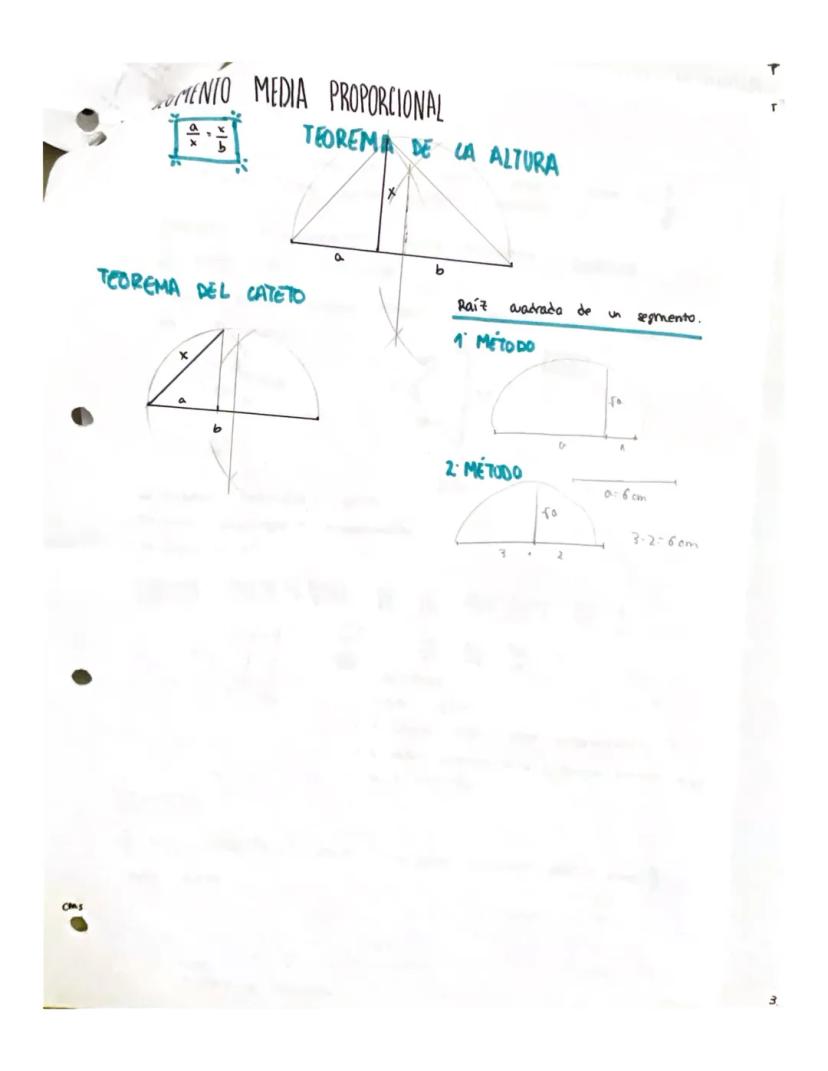 MEDIA PROPORCIONAL
a/x = x/b
TEOREMA DE LA ALTURA
x
a
b
TEOREMA DEL CATETO
x
a
b
Raíz cuadrada de un segmento.
1º MÉTODO
√a
a
1
2º MÉTODO
a=6cm
√a
3·2=6cm
3
2
cms
3